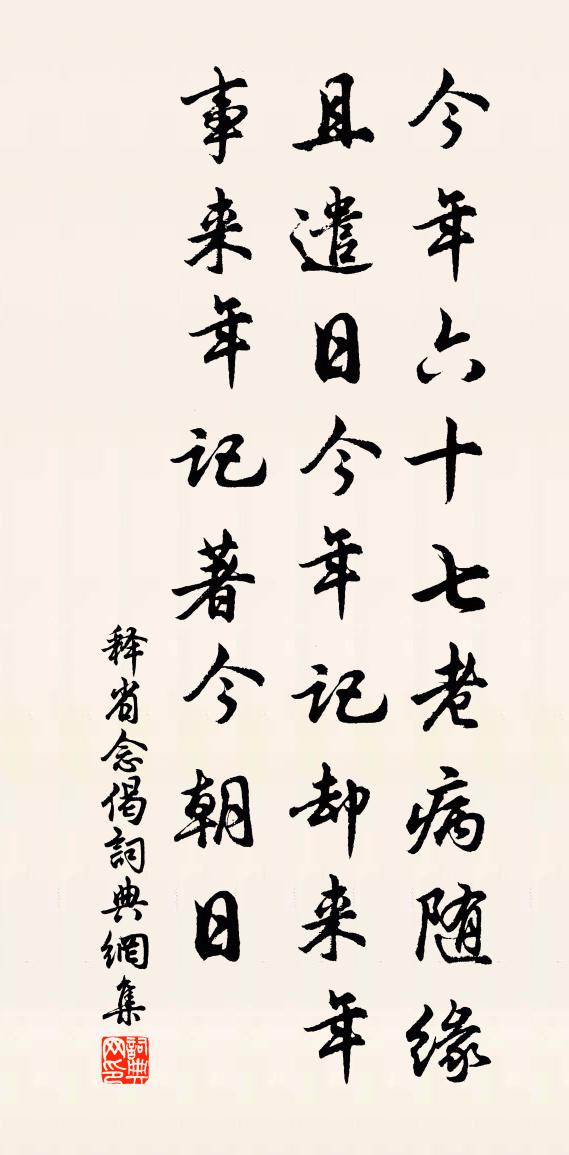 今年六十七老病随缘
且遣日今年记却来年
事来年记著今朝日
释省念偈詞典網集
詞典网印